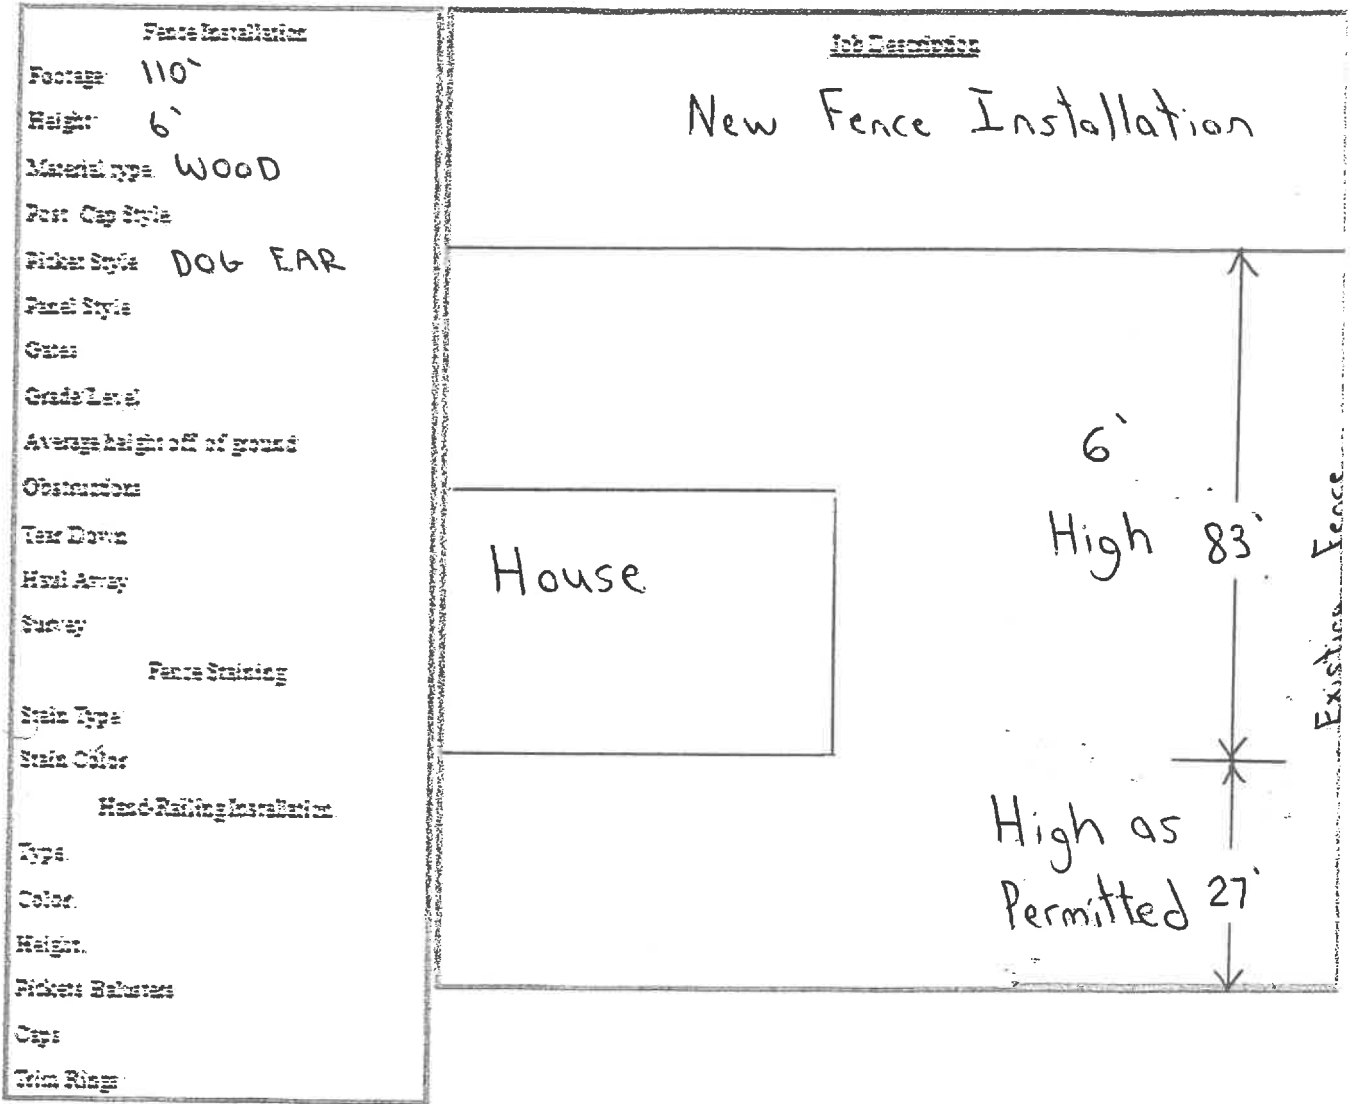 Fence Installation
Footage 110'
Height 6'
Material type WOOD
Post Cap Style
Picket Style DOG EAR
Panel Style
Gates
Grade Level
Average height off of ground
Obstructions
Tear Down
Haul Away
Survey
Fence Staining
Stain Type
Stain Color
Hand-Railing Installation
Type
Color
Height
Pickets Balusters
Caps
Trim Rings
Job Description
New Fence Installation
6'
High 83'
House
Existing Fence
High as
Permitted 27'